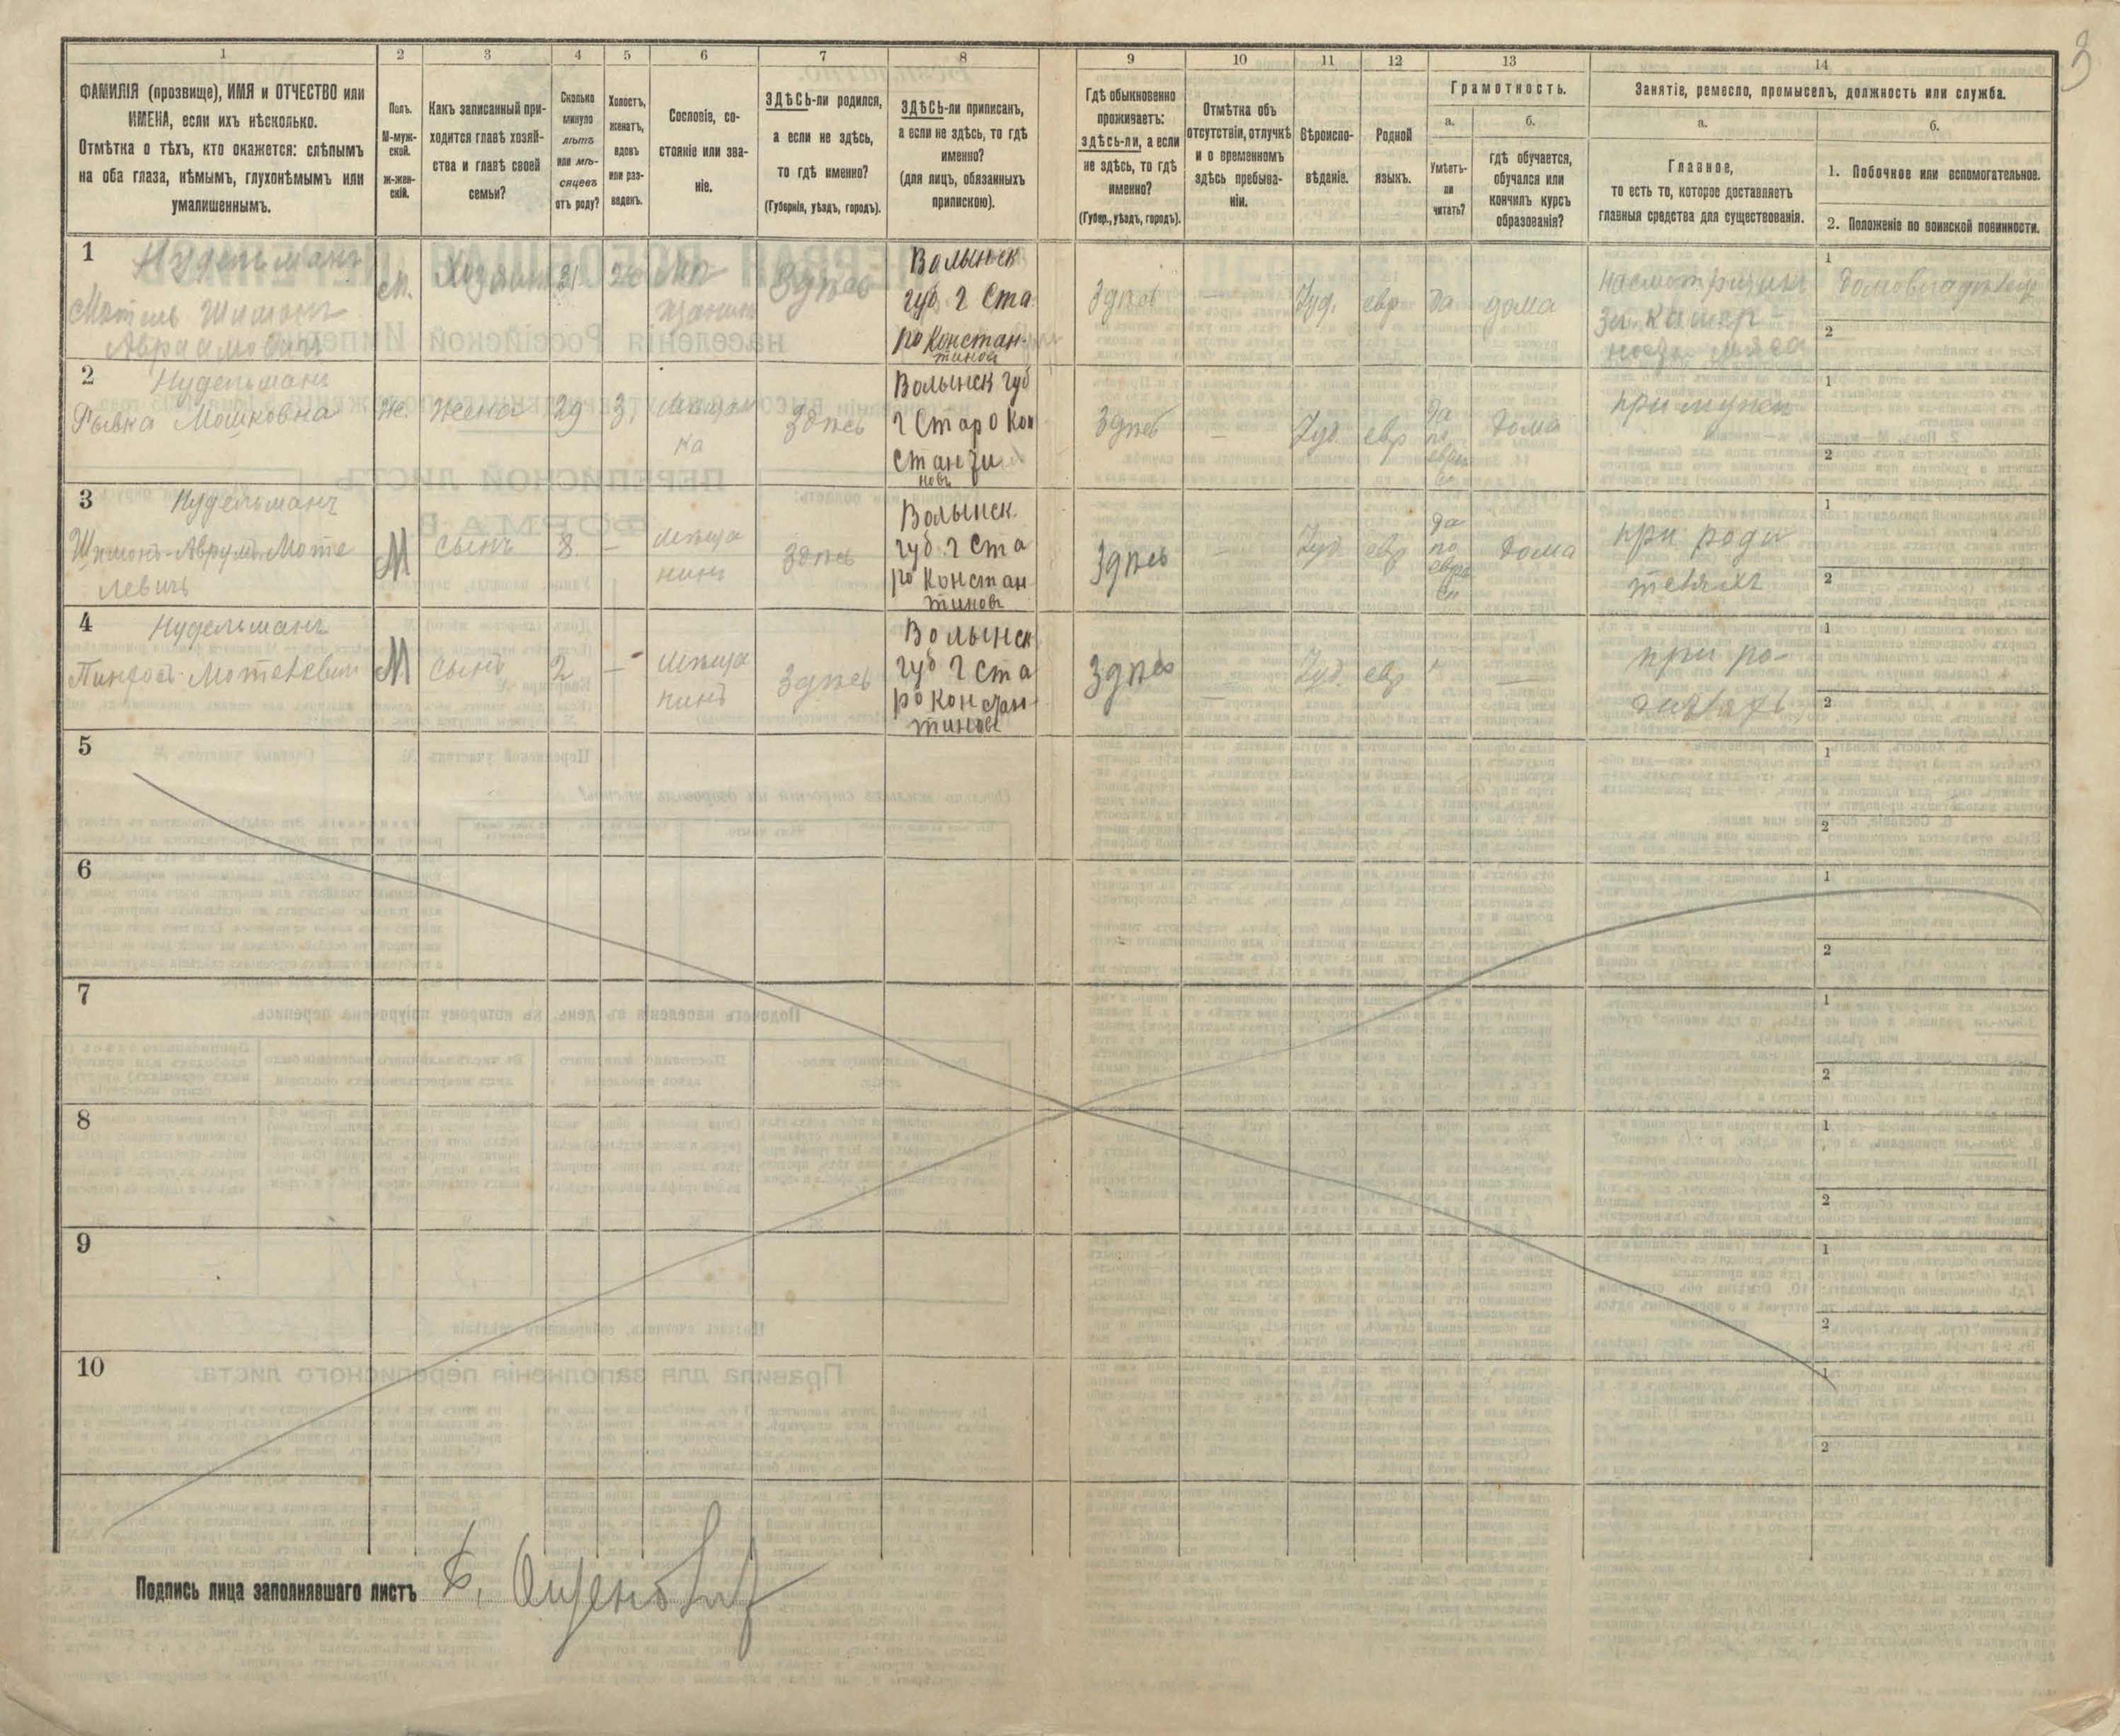 3
1
2
3
4
5
6
7
8
9
10
11
12
13
14
ФАМИЛІЯ (прозвище), ИМЯ и ОТЧЕСТВО или
ИМЕНА, если ихъ нѣсколько.
Отмѣтка о тѣхъ, кто окажется: слѣпымъ
на оба глаза, нѣмымъ, глухонѣмымъ или
умалишеннымъ.
Полъ.
М-муж-
ской.
ж-жен-
скій.
Какъ записанный при-
ходится главѣ хозяй-
ства и главѣ своей
семьи?
Сколько
минуло
лѣтъ
или мѣ-
сяцевъ
отъ роду?
Холостъ,
женатъ,
вдовъ
или раз-
веденъ.
Сословіе, со-
стояніе или зва-
ніе.
ЗДѢСЬ-ли родился,
а если не здѣсь,
то гдѣ именно?
(Губернія, уѣздъ, городъ).
ЗДѢСЬ-ли приписанъ,
а если не здѣсь, то гдѣ
именно?
(для лицъ, обязанныхъ
припискою).
Гдѣ обыкновенно
проживаетъ:
здѣсь-ли, а если
не здѣсь, то гдѣ
именно?
(Губер., уѣздъ, городъ).
Отмѣтка объ
отсутствіи, отлучкѣ
и о временномъ
здѣсь пребыва-
ніи.
Вѣроиспо-
вѣданіе.
Родной
языкъ.
Грамотность.
а.
Умѣетъ-
ли
читать?
б.
гдѣ обучается,
обучался или
кончилъ курсъ
образованія?
Занятіе, ремесло, промыселъ, должность или служба.
а.
Главное,
то есть то, которое доставляетъ
главныя средства для существованія.
б.
1. Побочное или вспомогательное.
2. Положеніе по воинской повинности.
1
Нудельманъ
Мотель Шимонъ
Аврамовичъ
м.
Хозяинъ
31
ж
мѣ
щанинъ
Здѣсь
Волынск
губ. г Ста
ро Констан-
тиновъ
Здѣсь
—
Іуд.
евр
да
дома
1
домовладѣлецъ
2
2
Нудельманъ
Рывка Мошковна
Ж.
жена
29
З.
мѣщан
ка
Здѣсь
Волынск губ
г Старо Кон
станти
новъ
Здѣсь
—
Іуд.
евр
да
по
дома
при мужѣ
1
2
3
Нудельманъ
Шимонъ-Аврумъ Моте
левичъ
М
сынъ
8.
—
мѣща
нинъ
Здѣсь
Волынск.
губ. г Ста
ро Констан
тиновъ
Здѣсь
—
Іуд.
евр
да
по
дома
при роди
теляхъ
1
2
4
Нудельманъ
Пинхосъ Мотелевич
М.
сынъ
2
—
мѣща
нинъ
Здѣсь
Волынск
губ г Ста
ро Констан-
тиновъ
Здѣсь
—
Іуд.
евр
—
при ро-
1
2
5
1
2
6
1
2
7
1
2
8
1
2
9
1
2
10
1
2
Подпись лица заполнявшаго листъ